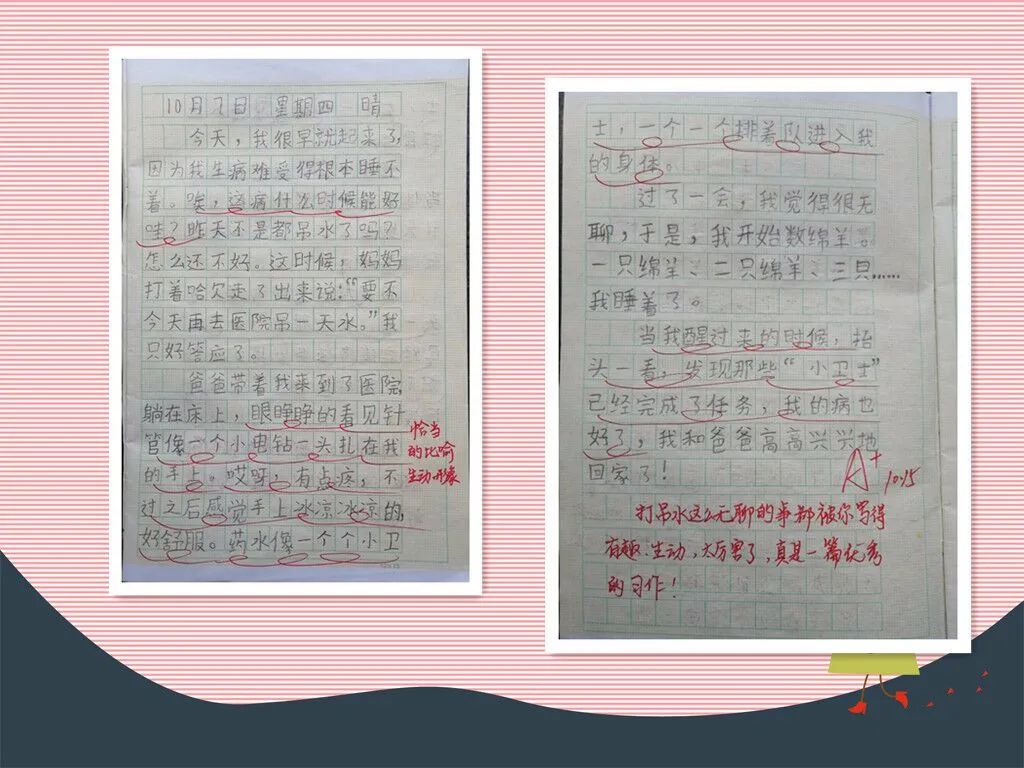 10月7日 星期四 晴
今天，我很早就起来了，
因为我生病难受得根本睡不
着。唉，这病什么时候能好
哇？昨天不是都吊水了吗？
怎么还不好。这时候，妈妈
打着哈欠走了出来说：“要不
今天再去医院吊一天水。”我
只好答应了。
爸爸带着我来到了医院，
躺在床上，眼睁睁的看见针
管像一个小电钻一头扎在我
的手上。哎呀，有点疼，不
过之后感觉手上冰凉冰凉的，
好舒服。药水像一个个小卫
恰当
的比喻
生动形象
士，一个一个排着队进入我
的身体。
过了一会，我觉得很无
聊，于是，我开始数绵羊。
一只绵羊、二只绵羊、三只……
我睡着了。
当我醒过来的时候，抬
头一看，发现那些“小卫士”
已经完成了任务，我的病也
好了，我和爸爸高高兴兴地
回家了！
A+ 10.15
打吊水这么无聊的事都被你写得
有趣、生动，太厉害了，真是一篇优秀
的习作！